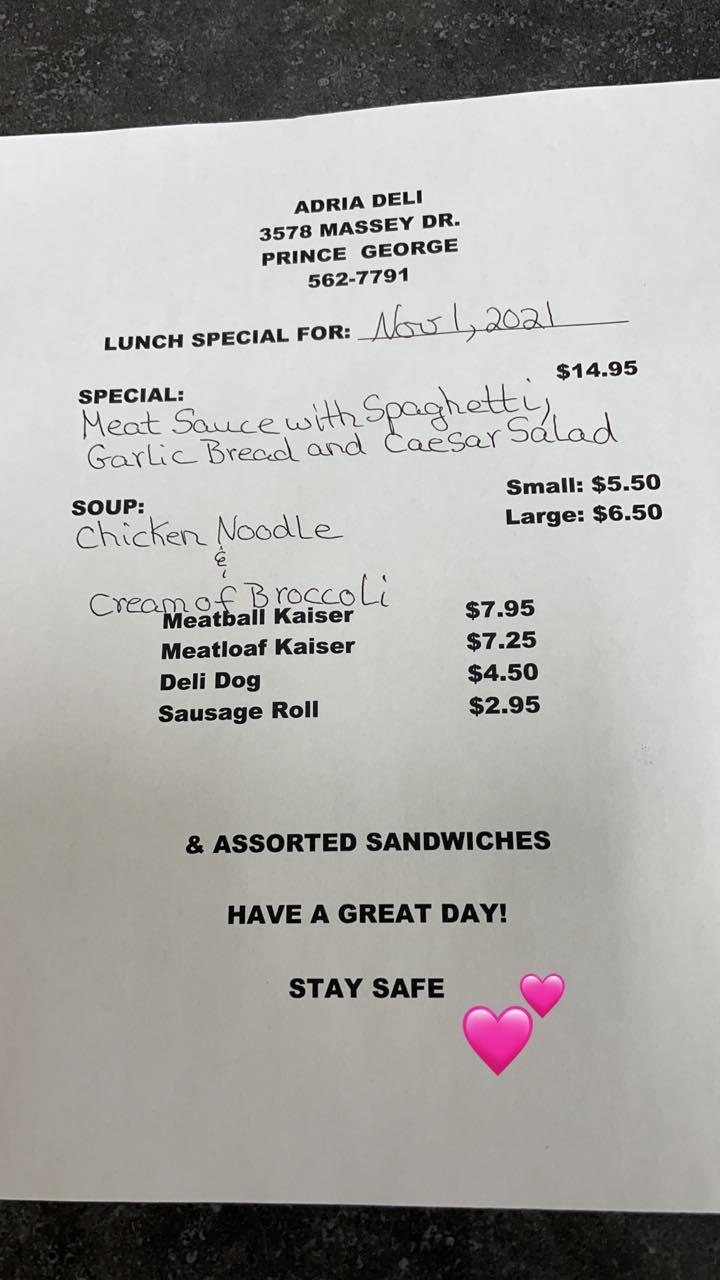 ADRIA DELI
3578 MASSEY DR.
PRINCE GEORGE
562-7791
LUNCH SPECIAL FOR: Nov 1, 2021
$14.95
SPECIAL:
Meat Sauce with Spaghetti,
Garlic Bread and Caesar Salad
Small: $5.50
SOUP:
Large: $6.50
Chicken Noodle
&
Cream of Broccoli
Meatball Kaiser $7.95
Meatloaf Kaiser $7.25
Deli Dog $4.50
Sausage Roll $2.95
& ASSORTED SANDWICHES
HAVE A GREAT DAY!
STAY SAFE